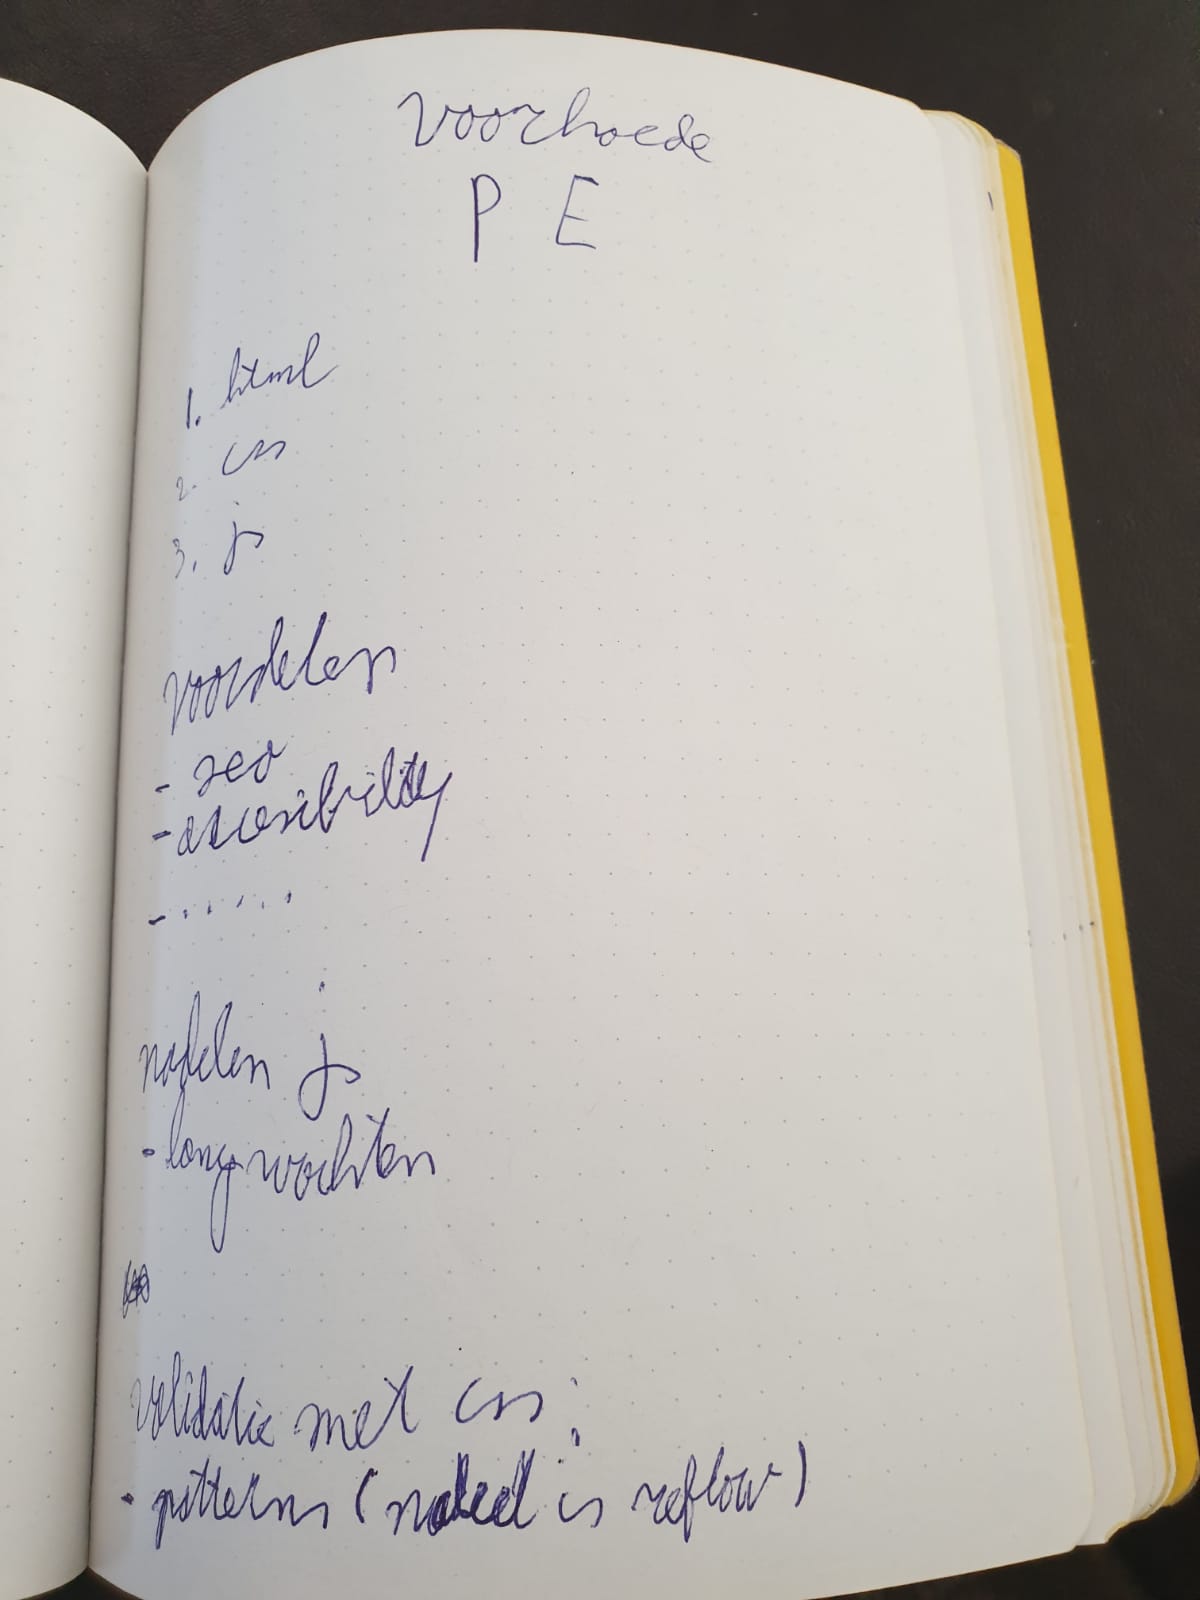 Voorhoede
P E
1. html
2. css
3. js
voordelen
- seo
- accesibility
- ......
nadelen js
- lang wachten
validatie met css:
- patterns (nadeel is reflow)